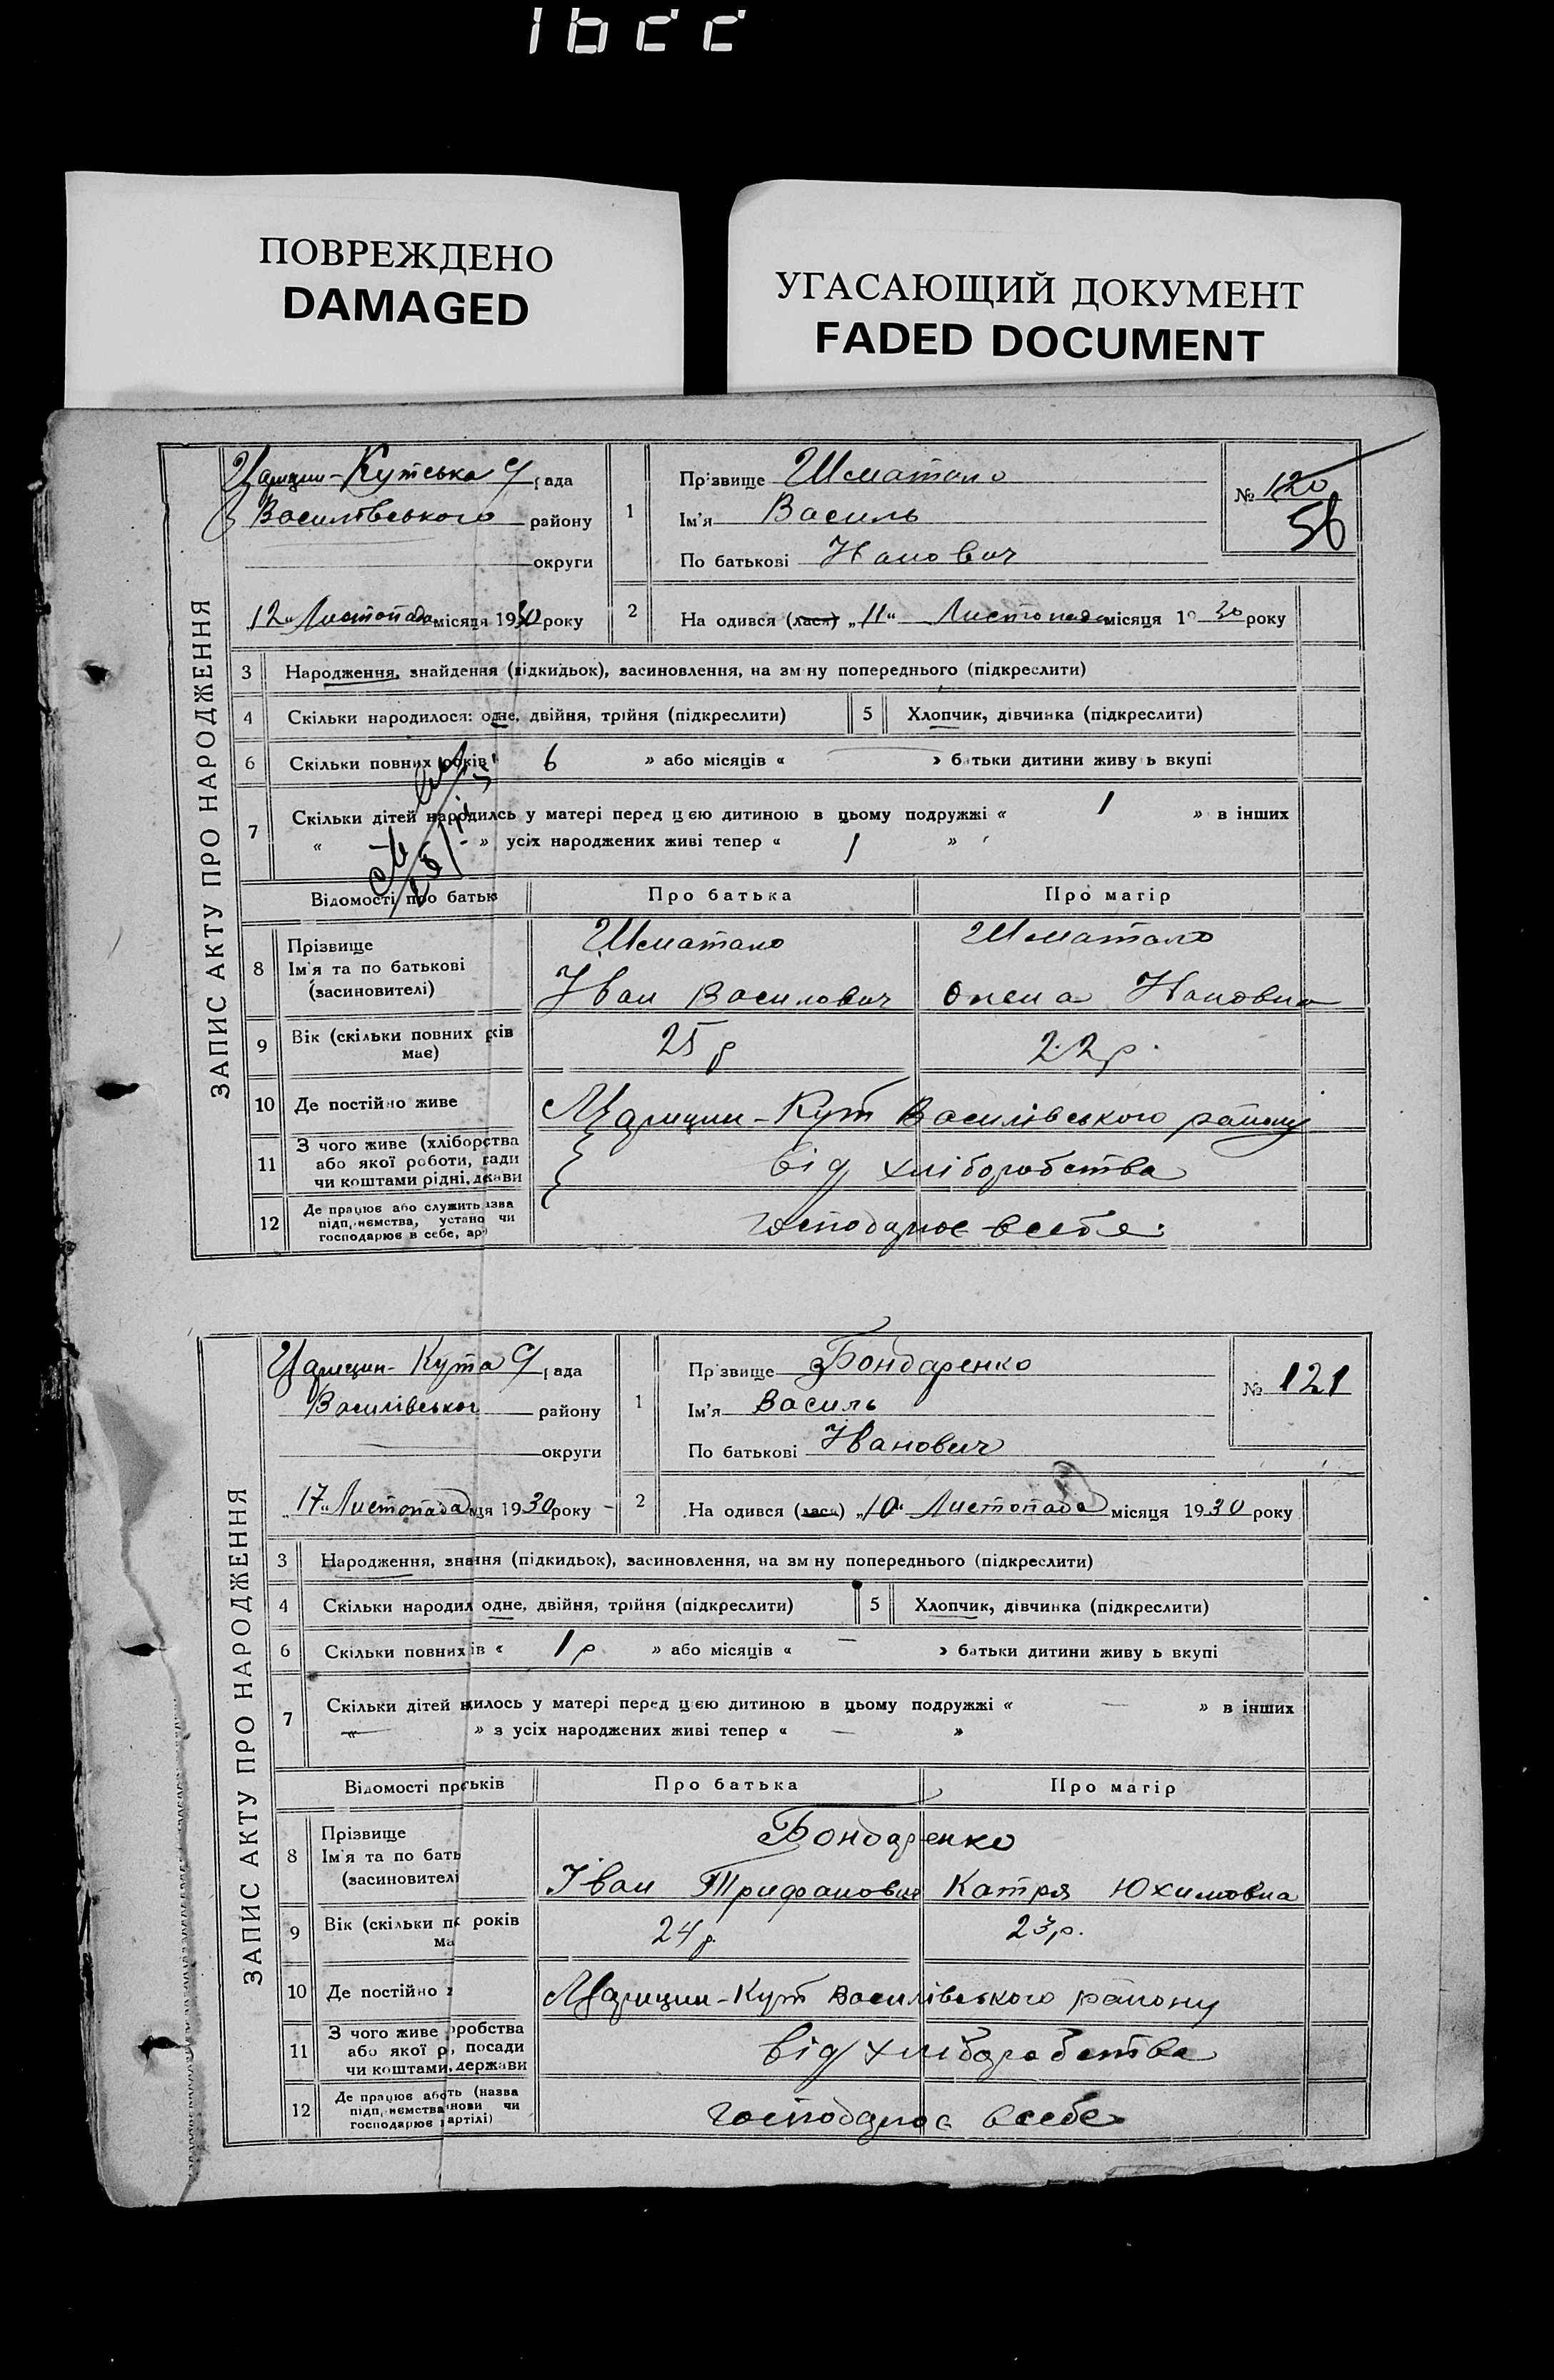 1622
ПОВРЕЖДЕНО
DAMAGED
УГАСАЮЩИЙ ДОКУМЕНТ
FADED DOCUMENT
ЗАПИС АКТУ ПРО НАРОДЖЕННЯ
Царицин-Кутська С/рада
Василівського району
округи
12 „Листопада місяця 1930 року
1
Прізвище Шматало
Ім'я Василь
По батькові Іванович
№ 120
56
2 На одився (лася) „11“ Листопада місяця 19 30 року
3 Народження, знайдення (підкидьок), засиновлення, на зм ну попереднього (підкреслити)
4 Скільки народилося: одне, двійня, трійня (підкреслити) 5 Хлопчик, дівчинка (підкреслити)
6 Скільки повних років 6 » або місяців « » батьки дитини живу ь вкупі
7 Скільки дітей народилсь у матері перед цією дитиною в цьому подружжі « 1 » в інших
« - » усіх народжених живі тепер « 1 »
Відомості про батьк Про батька Про матір
8 Прізвище
Ім'я та по батькові
(засиновителі)
Шматало Шматало
Іван Василович Олена Івановна
9 Вік (скільки повних рків
має) 25 р 22 р.
10 Де постійно живе Царицин-Кут Василівського району
11 З чого живе (хліборства
або якої роботи, сади
чи коштами рідні, держави від хліборобства
12 Де працює або служить ізва
підп.иємства, устано чи
господарює в себе, ар) господарює в себе.
ЗАПИС АКТУ ПРО НАРОДЖЕННЯ
Царицин-Кута С/рада
Василівськог району
округи
„17“ Листопада ця 1930 року
1
Прізвище Бондаренко
Ім'я Василь
По батькові Іванович
№ 121
2 На одився (лася) „10“ Листопада місяця 1930 року
3 Народження, знання (підкидьок), засиновлення, на зм ну попереднього (підкреслити)
4 Скільки народил одне, двійня, трійня (підкреслити) 5 Хлопчик, дівчинка (підкреслити)
6 Скільки повних ів « 1 р » або місяців « — » батьки дитини живу ь вкупі
7 Скільки дітей нилось у матері перед цією дитиною в цьому подружжі « — » в інших
« — » з усіх народжених живі тепер « — »
Відомості прськів Про батька Про матір
8 Прізвище
Ім'я та по бать
(засиновителі
Бондаренко
Іван Трифанович Катря Юхимовна
9 Вік (скільки по років
ма 24 р. 23 р.
10 Де постійно ж Царицин-Кут Василівського району
11 З чого живе оробства
або якої р, посади
чи коштами, держави від хліборобства
12 Де працює або ть (назва
підп.иємства нови чи
господарює артілі) господарює в себе